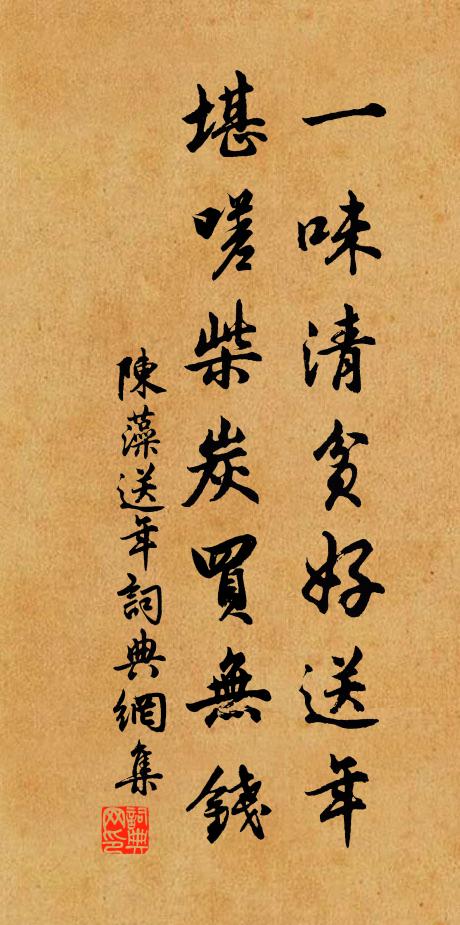 一味清貧好送年
堪嗟柴炭買無錢
陳藻送年詞典網集
詞典网印